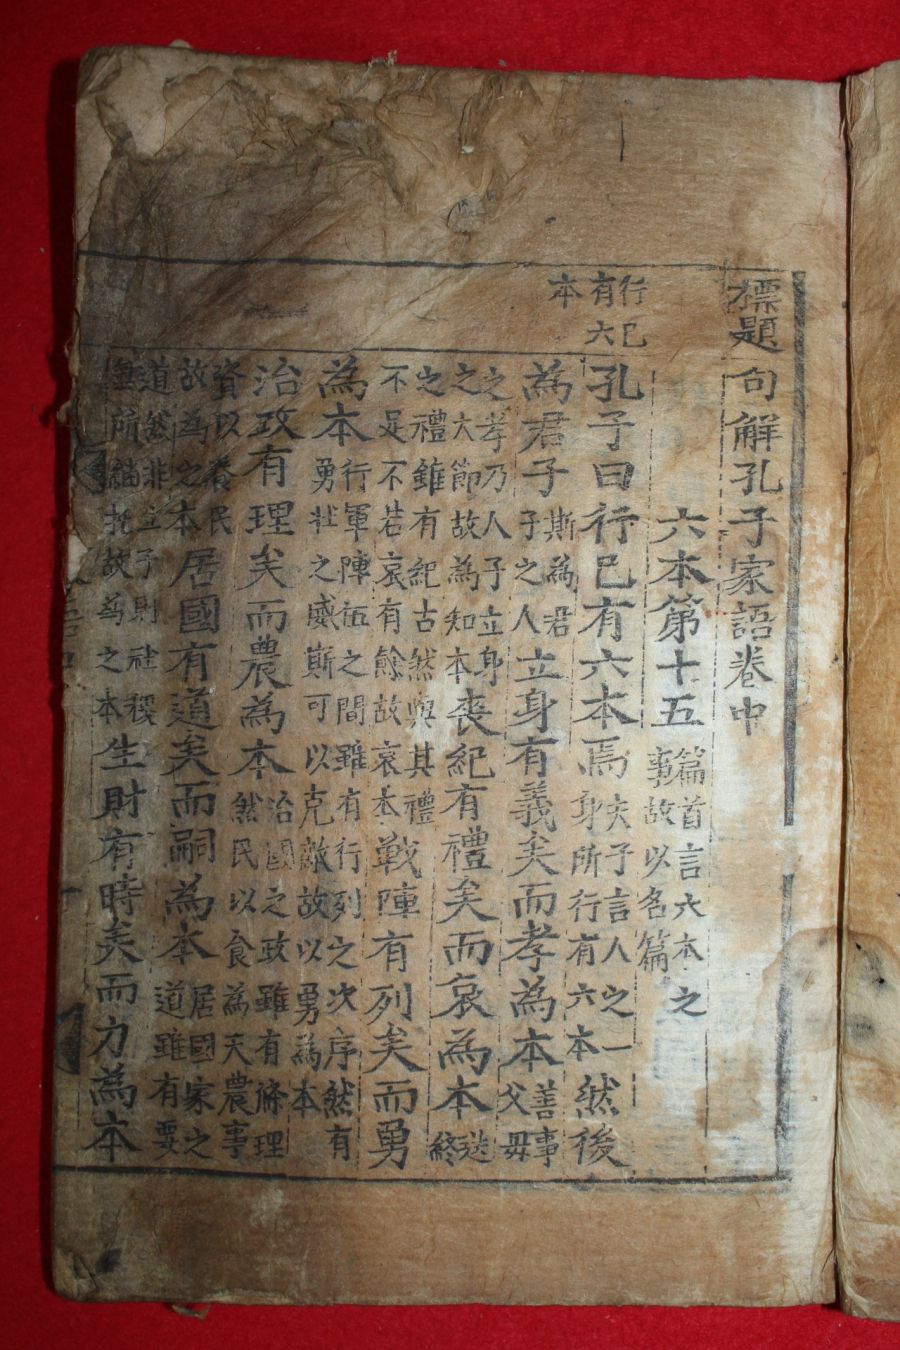 標題句解孔子家語卷中
六本第十五 篇首言六本之事故以名篇
行已有六本
孔子曰行已有六本焉 夫子言人之一身所行有六本 然後
為君子 斯為君子之人 立身有義矣而孝為本 善事父母
之孝乃人子立身之大節故為知本 喪紀有禮矣而哀為本 送終
之禮雖有紀古然與其禮不足不若哀有餘故哀本 戰陣有列矣而勇
為本 行軍陣伍之間雖有行列之次序然有勇壯之威斯可以克敵故以勇為本
治政有理矣而農為本 治國之政雖有條理然民以食為天農事
資以養民故為之本 居國有道矣而嗣為本 居國家之道雖有要
道然非立子則社稷無所托故為之本 生財有時矣而力為本